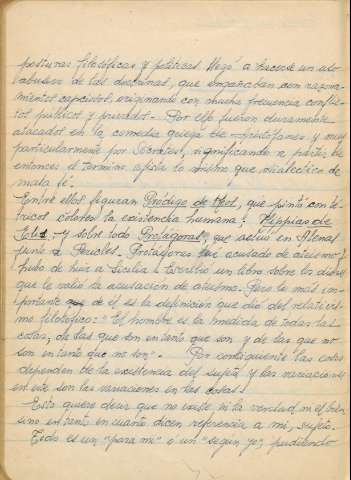 posturas filosóficas y políticas llegó a hacerse un uso
abusivo de las doctrinas, que engañaban con razona-
mientos capciosos, originando con mucha frecuencia conflic-
tos públicos y privados.- Por ello fueron duramente
atacados en la comedia griega de Aristófanes y muy
particularmente por Sócrates, significando a partir de
entonces el término sofista lo mismo que dialéctica de
mala fe.-
Entre ellos figuran Pródigo de que pintó con té-
tricos colores la existencia humana; Hippias de
y sobre todo Protágoras, que actuó en Atenas
junto a Pericles.- Protágoras fue acusado de ateismo y
hubo de huir a Sicilia. Escribió un libro sobre la
que le valió la acusación de ateismo. Pero lo más im-
portante de él es la definición que dió del relativis-
mo filosófico: "El hombre es la medida de todas las
cosas, de las que son en tanto que son y de las que no
son en tanto que no son". Por consiguiente las cosas
dependen de la existencia del sujeto y las variaciones
en este son las variaciones en las cosas.-
Esto quiere decir que no existe ni la verdad, ni el bien
sino en tanto en cuanto dicen referencia a mí, sujeto.
Todo es un "para mí" o un "según yo", pudiendo